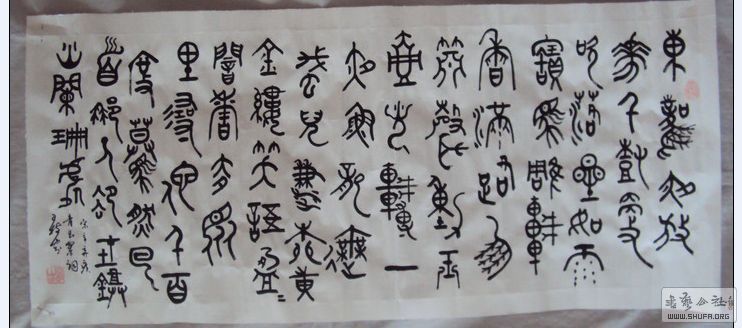 東風夜放
花千樹更
吹落星如雨
寶馬雕車
香滿路鳳
簫聲動玉
壺光轉一
夜魚龍舞
蛾兒雪柳黃
金縷笑語盈盈
暗香去眾
里尋他千百
度驀然回
首那人卻在燈
火闌珊處
宋辛棄疾
青玉案詞
书艺公社
WWW.SHUFA.ORG